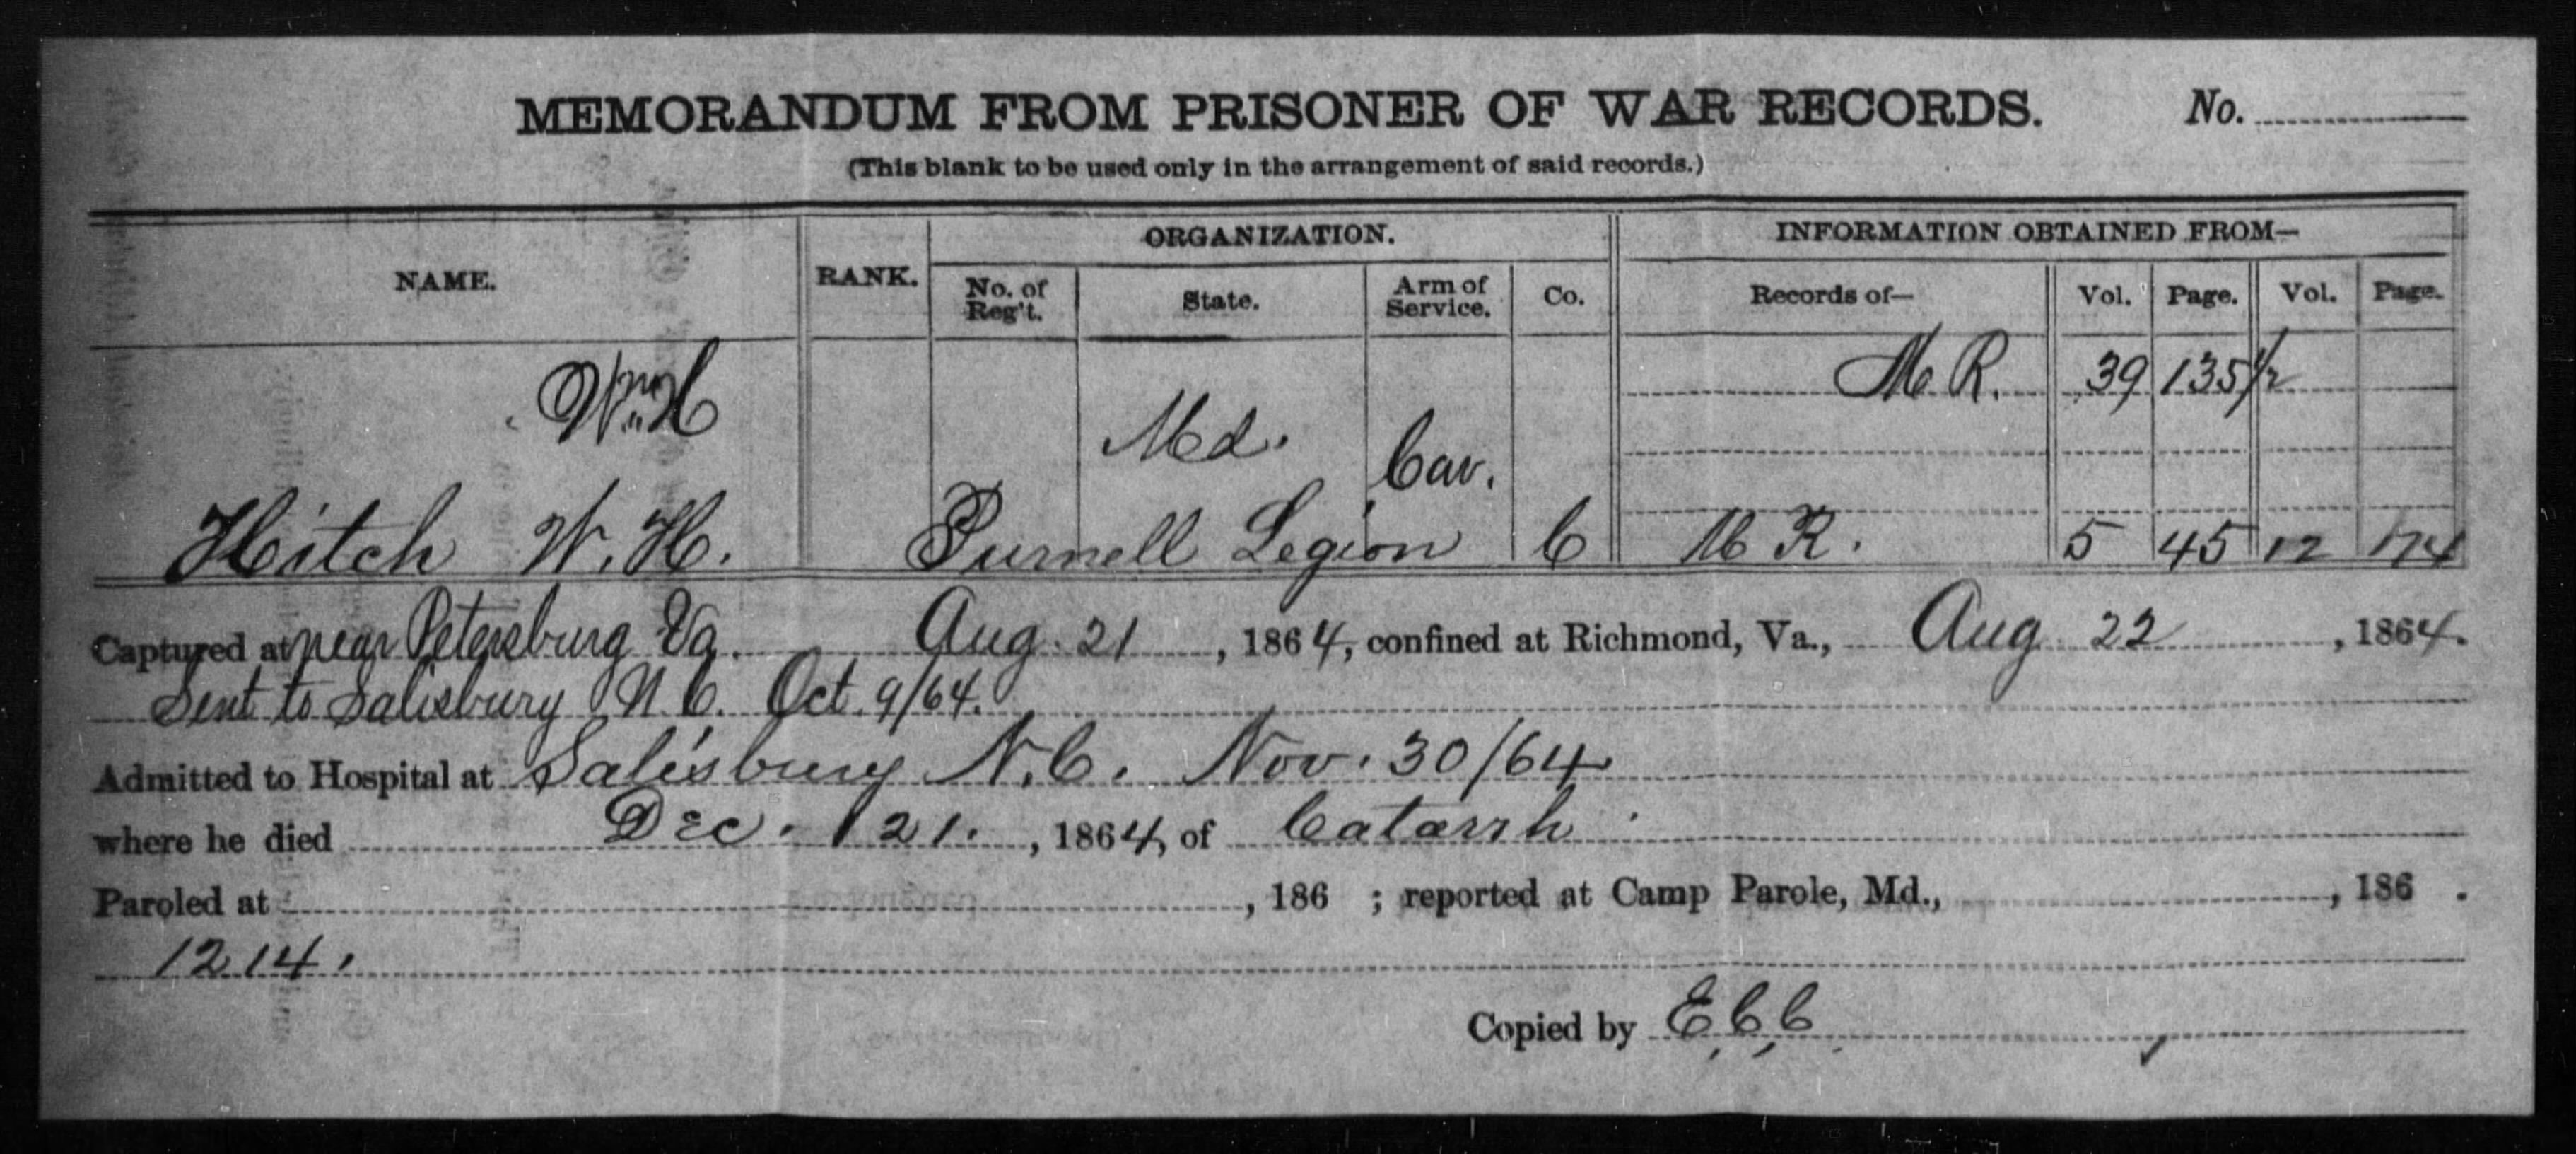 MEMORANDUM FROM PRISONER OF WAR RECORDS. No.
(This blank to be used only in the arrangement of said records.)
NAME. RANK. ORGANIZATION. INFORMATION OBTAINED FROM—
No. of Reg't. State. Arm of Service. Co. Records of— Vol. Page. Vol. Page.
Wm H M R. 39 135 1/2
Md. Cav.
Hitch W. H. Purnell Legion C M R. 5 45 12 174
Captured at near Petersburg Va. Aug. 21, 1864, confined at Richmond, Va., Aug 22, 1864.
Sent to Salisbury N. C. Oct. 9/64.
Admitted to Hospital at Salisbury N.C. Nov. 30/64
where he died Dec. 21., 1864, of Catarrh
Paroled at , 186 ; reported at Camp Parole, Md., , 186 .
1214.
Copied by E C C